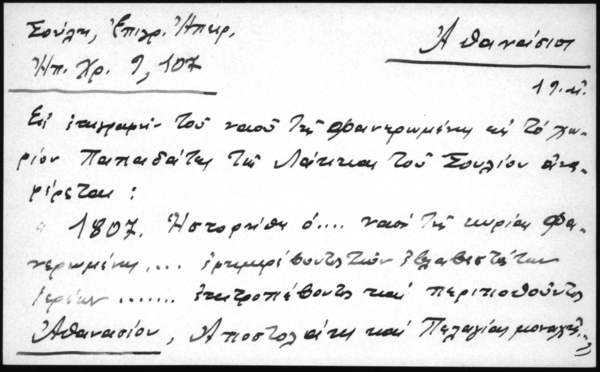 Σούλη, Ἐπιγρ. Ἠπείρ.
Ἠπ. Χρ. 9, 107
Ἀθανάσιοι
19. αἰ.
Εἰς ἐπιγραφὴν τοῦ ναοῦ τῆς Φανερωμένης εἰς τὸ χω-
ρίον Παπαδάτες τῆς Λάκκας τοῦ Σουλίου ἀνα-
φέρεται :
" 1807. Ἡστορήθη ὁ.... ναός τῆς κυρίας Φα-
νερωμένης.... ἐφημερέβοντος τῶν ἐβλαβεστάτων
ἱερέων ....... ἐπιτροπέβοντος καὶ περιποθοῦντος
Ἀθανασίου, Ἀποστολάκη καὶ Πελαγίας μοναχῆς."